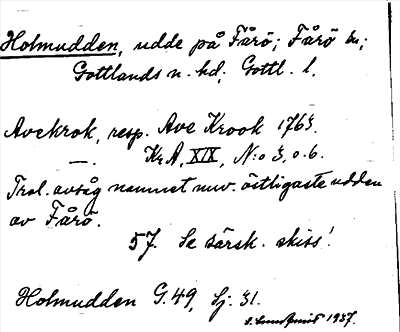 Holmudden, udde på Fårö; Fårö sn;
Gottlands n. hd; Gottl. l.
Avekrok, resp. Ave Krook 1763.
—. KrA, XIX, N:o 3, o. 6.
Trol. avsåg namnet nuv. östligaste udden
av Fårö.
57. Se särsk. skiss!
Holmudden G. 49, Sj. 31.
1937.